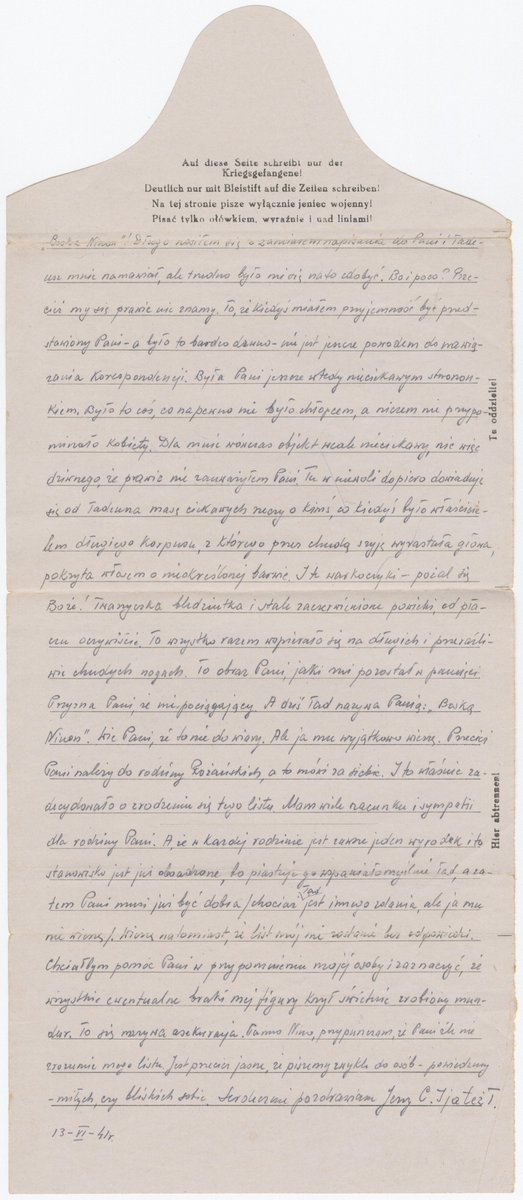 Auf diese Seite schreibt nur der
Kriegsgefangene!
Deutlich nur mit Bleistift auf die Zeilen schreiben!
Na tej stronie pisze wyłącznie jeniec wojenny!
Pisać tylko ołówkiem, wyraźnie i nad liniami!
„Boska Ninon"! Długo nosiłem się z zamiarem napisania do Pani i Tade-
usz mnie namawiał, ale trudno było mi się na to zdobyć. Bo i poco? Prze-
cież my się prawie nie znamy. To, że kiedyś miałem przyjemność być przed-
stawiony Pani – a było to bardzo dawno – nie jest jeszcze powodem do nawią-
zania korespondencji. Była Pani jeszcze wtedy nieciekawym stwonon-
kiem. Było to coś, co napewno nie było chłopcem, a niczem nie przypo-
minało kobiety. Dla mnie wówczas objekt wcale nieciekawy, nic więc
dziwnego, że prawie nie zauważyłem Pani. Tu w niewoli dopiero dowiaduję
się od Tadeusza masę ciekawych rzeczy o kimś, co kiedyś było właścicie-
lem długiego korpusu, z którego przez chudą szyję wyrastała głowa,
pokryta włosem o nieokreślonej barwie. I te warkoczyki – pożal się
Boże! Twarzyczka bledziutka i stale zaczerwienione powieki, od pła-
czu oczywiście. To wszystko razem wspierało się na długich i przeraźli-
wie chudych nogach. To obraz Pani jaki mi pozostał w pamięci
Przyzna Pani, że nie pociągający. A dziś Tad nazywa Panią: „Boską
Ninon". Wie Pani, że to nie do wiary. Ale ja mu wyjątkowo wierzę. Przecież
Pani należy do rodziny Różańskich, a to mówi za siebie. I to właśnie za-
decydowało o zrodzeniu się tego listu. Mam wiele szacunku i sympatii
dla rodziny Pani. A, że w każdej rodzinie jest zawsze jeden wyrodek i to
stanowisko jest już obsadzone, bo piastuje go wspaniałomyślnie Tad, a za-
tem Pani musi już być dobra /chociaż Tad jest innego zdania, ale ja mu
nie wierzę/. Wierzę natomiast, że list mój nie zostanie bez odpowiedzi.
Chciałbym pomóc Pani w przypomnieniu mojej osoby i zaznaczyć, że
wszystkie ewentualne braki mej figury krył świetnie zrobiony mun-
dur. To się nazywa asekuracja. Panno Nino, przypuszczam, że Pani źle nie
zrozumie mego listu. Jest przecież jasne, że piszemy zwykle do osób – powiedzmy
– miłych, czy bliskich sobie. Serdecznie pozdrawiam Jerzy C. I ja też T.
13-VI-41r.
Tu oddzielić!
Hier abtrennen!